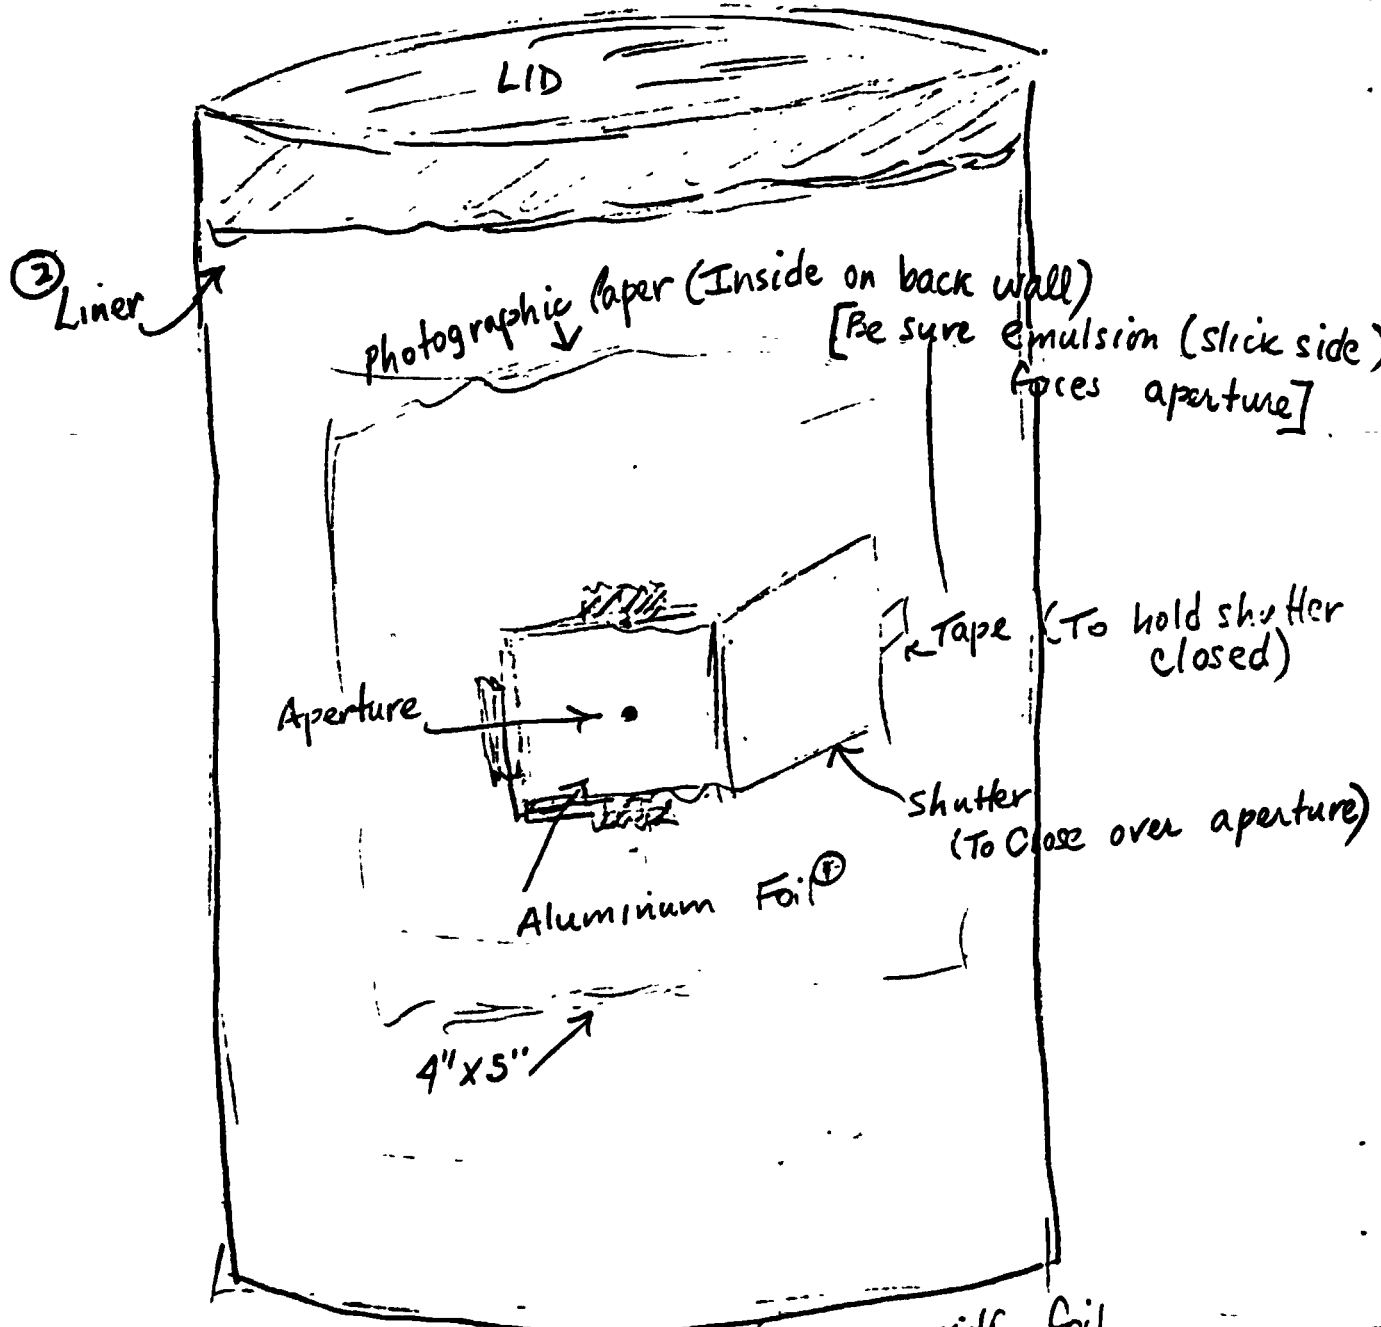 LID
② Liner
photographic Paper (Inside on back wall)
[Be sure emulsion (slick side)
faces aperture]
Tape (To hold shutter
closed)
Aperture
Shutter
(To Close over aperture)
Aluminium Foil ①
4" x 5"
foil